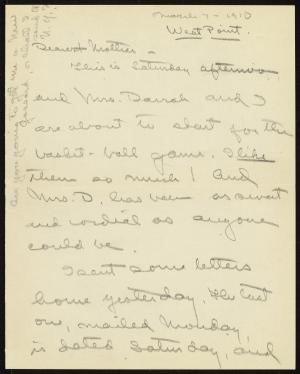 March 7 - 1910
West Point.
Dearest Mother -
This is Saturday afternoon
and Mrs. Darrah and I
are about to start for the
basket-ball game. I like
them so much! And
Mrs. D. has been as sweet
and cordial as anyone
could be.
I sent some letters
home yesterday. The last
one, mailed Monday,
is dated Saturday, and
Are you going to get me a new